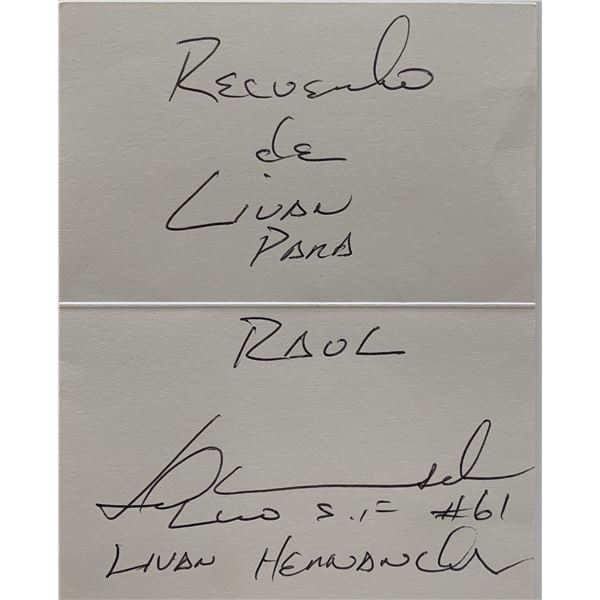 Recuerdo
de
Livan
Para
Raul
S.F #61
Livan Hernandez